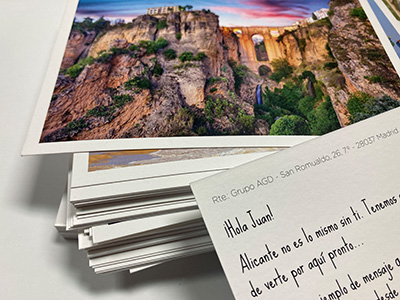 Rte.: Grupo AGD - San Romualdo, 26, 7ª - 28037 Madrid
¡Hola Juan!
Alicante no es lo mismo sin ti. Tenemos
de verte por aquí pronto...
mplo de mensaje
desde